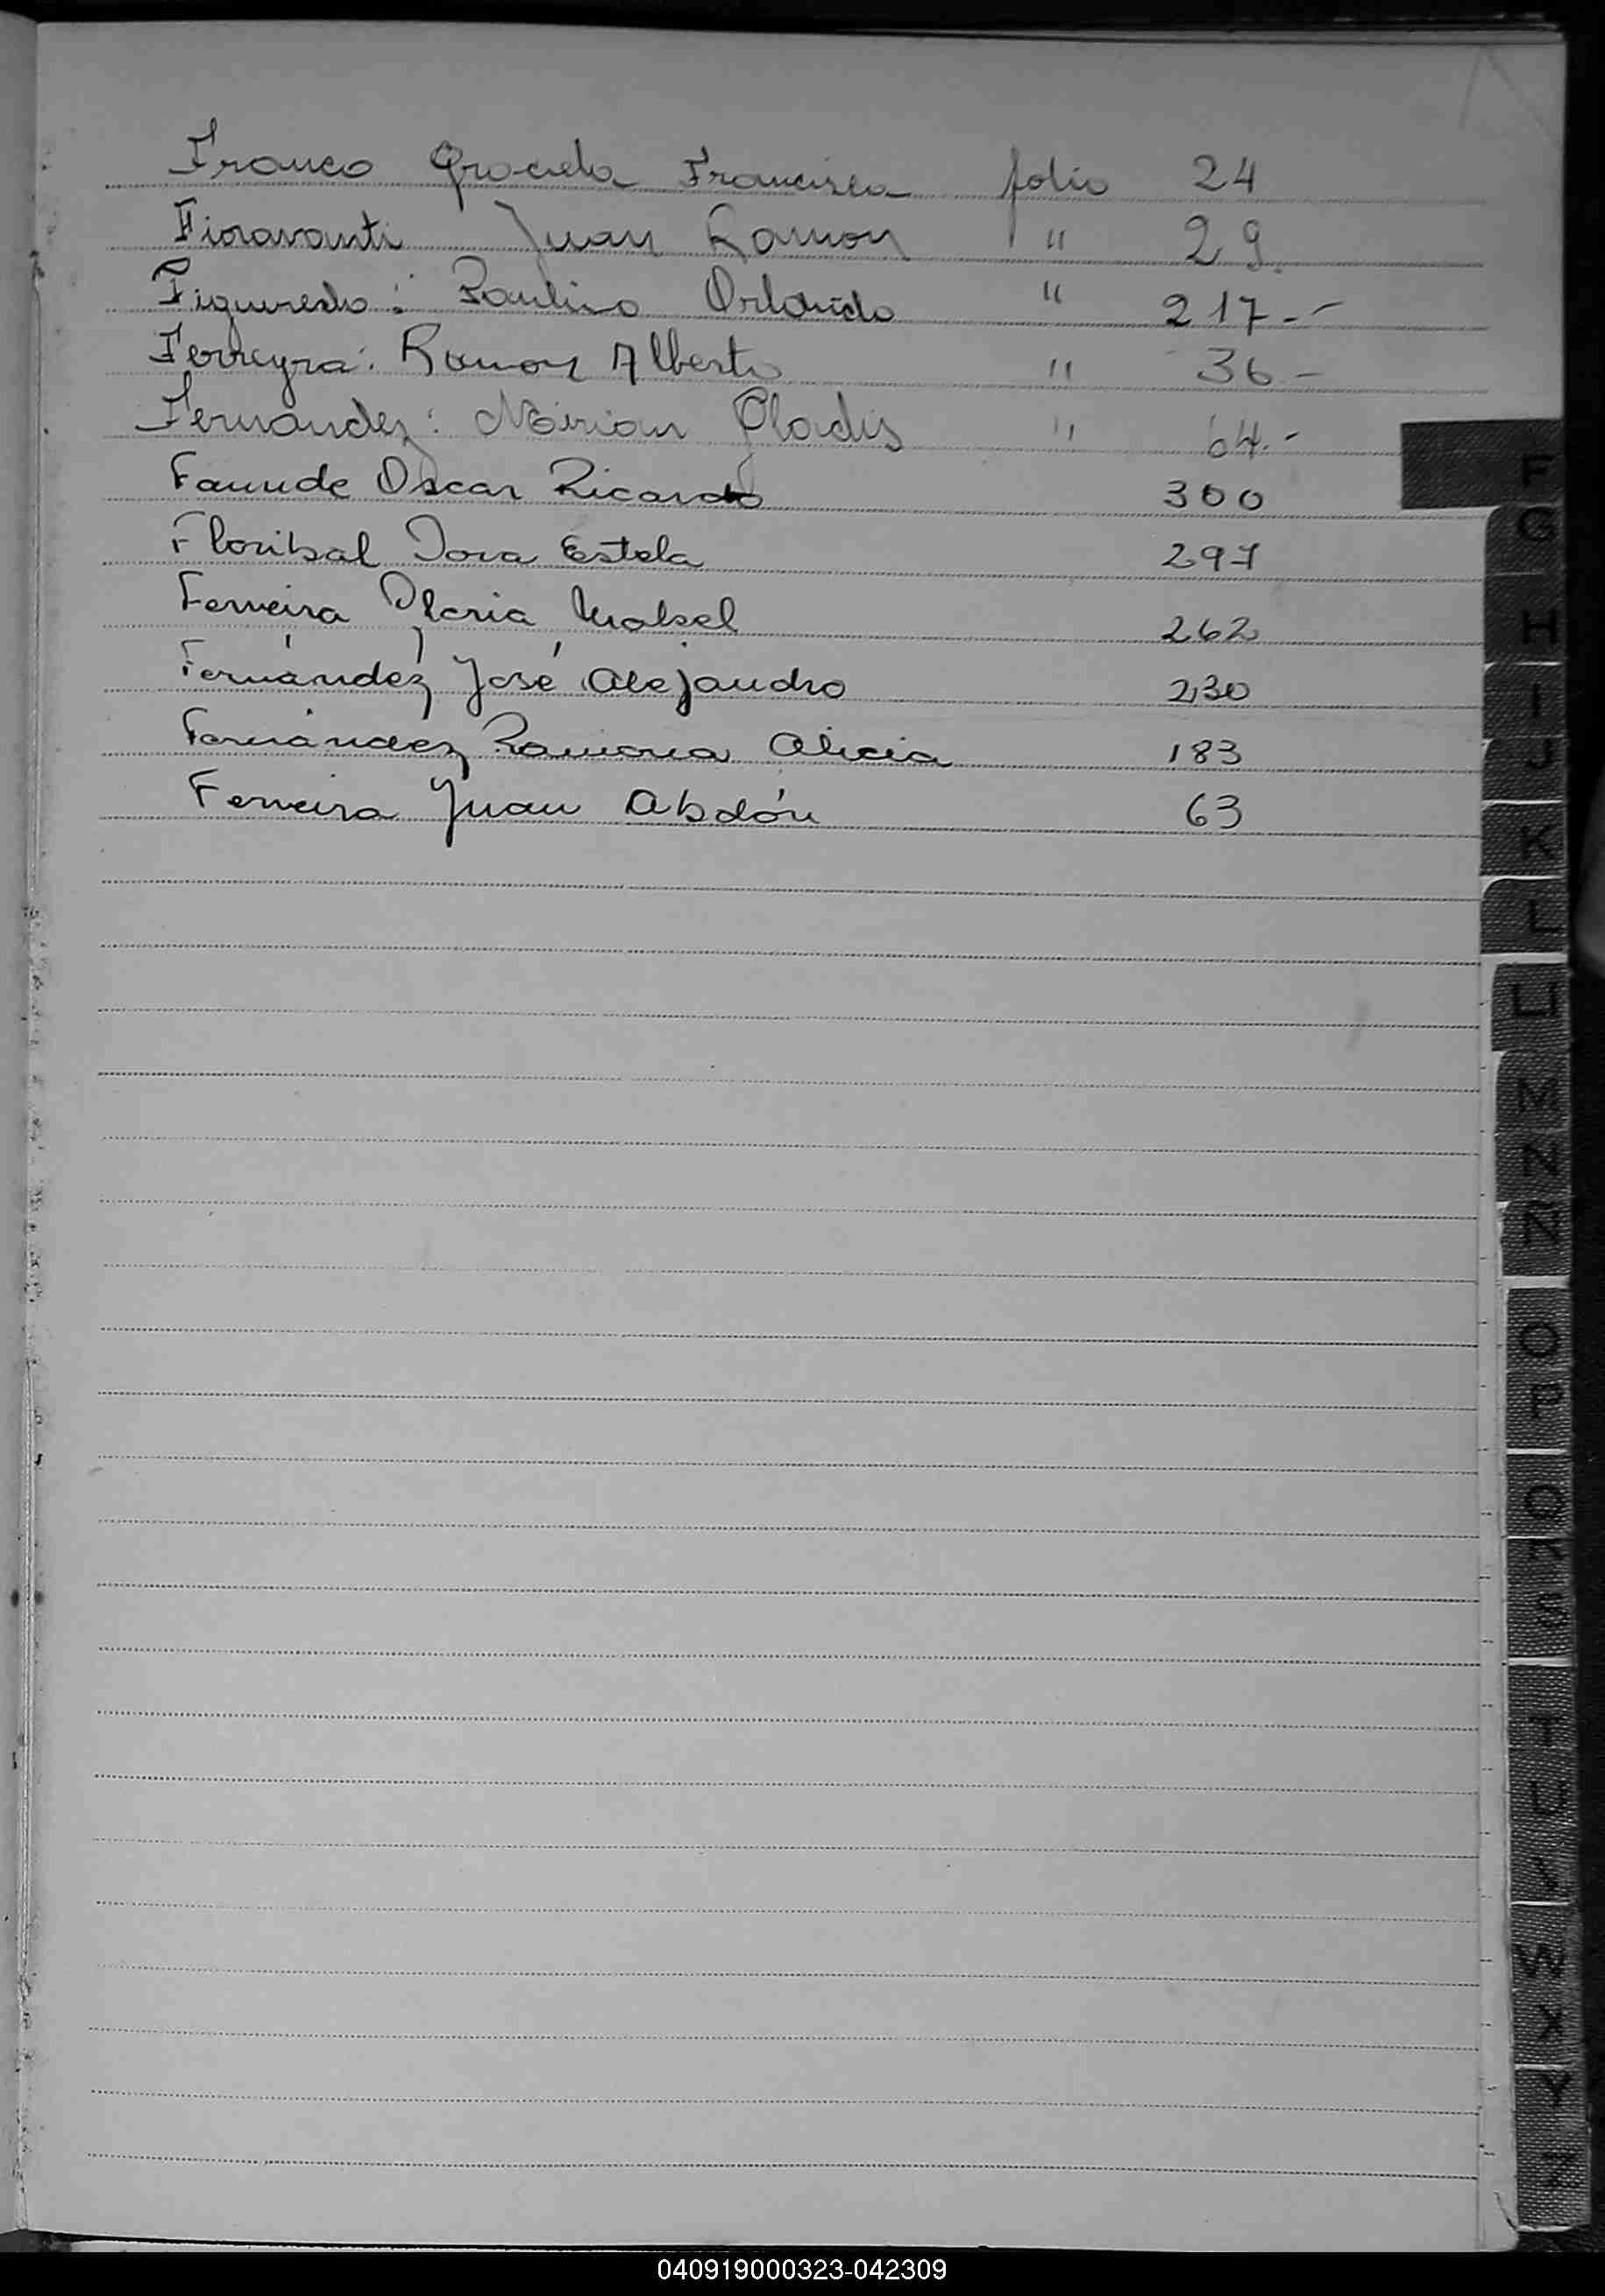 Franco Graciela Francisca folio 24
Fioravanti Juan Ramon " 29.
Figueredo: Paulino Orlando " 217.-
Ferreyra: Ramon Alberto " 36-
Fernandez: Mirian Gladis " 64.-
Faunde Oscar Ricardo 300
Floribal Dora Estela 297
Ferreira María Mabel 262
Fernández José Alejandro 230
Fernández Ramona Alicia 183
Ferreira Juan Abdón 63
F
G
H
I
J
K
L
LL
M
N
Ñ
O
P
Q
R
S
T
U
V
W
X
Y
Z
040919000323-042309